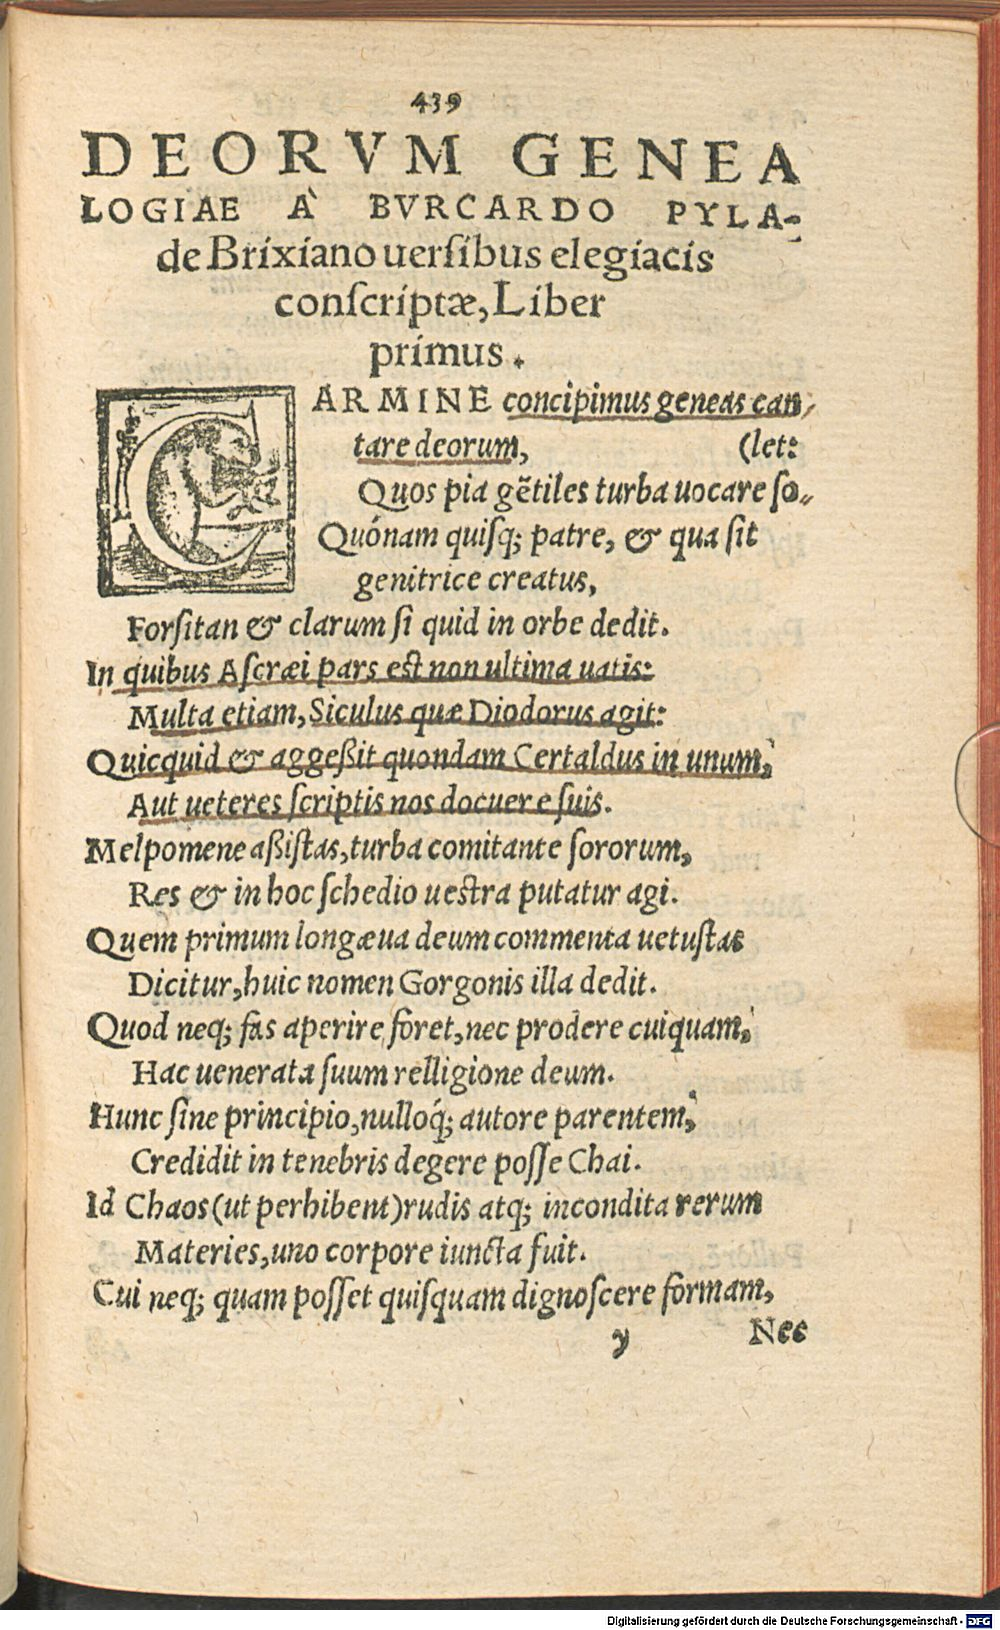 439
DEORVM GENEA
LOGIAE À BVRCARDO PYLA-
de Brixiano uerſibus elegiacis
conſcriptæ, Liber
primus.
CARMINE concipimus geneas can-
tare deorum, (let:
Quos pia gẽtiles turba uocare ſo-
Quónam quiſq; patre, & qua ſit
genitrice creatus,
Forſitan & clarum ſi quid in orbe dedit.
In quibus Aſcræi pars est non ultima uatis:
Multa etiam, Siculus quæ Diodorus agit:
Quicquid & aggeßit quondam Certaldus in unum,
Aut ueteres ſcriptis nos docuere ſuis.
Melpomene aßiſtas, turba comitante ſororum,
Res & in hoc ſchedio uestra putatur agi.
Quem primum longæua deum commenta uetuſtas
Dicitur, huic nomen Gorgonis illa dedit.
Quod neq; fas aperire foret, nec prodere cuiquam,
Hac uenerata ſuum relligione deum.
Hunc ſine principio, nulloq́; autore parentem,
Credidit in tenebris degere poſſe Chai.
Id Chaos (ut perhibent) rudis atq; incondita rerum
Materies, uno corpore iuncta fuit.
Cui neq; quam poſſet quiſquam dignoſcere formam,
y Nec
Digitalisierung gefördert durch die Deutsche Forschungsgemeinschaft - DFG